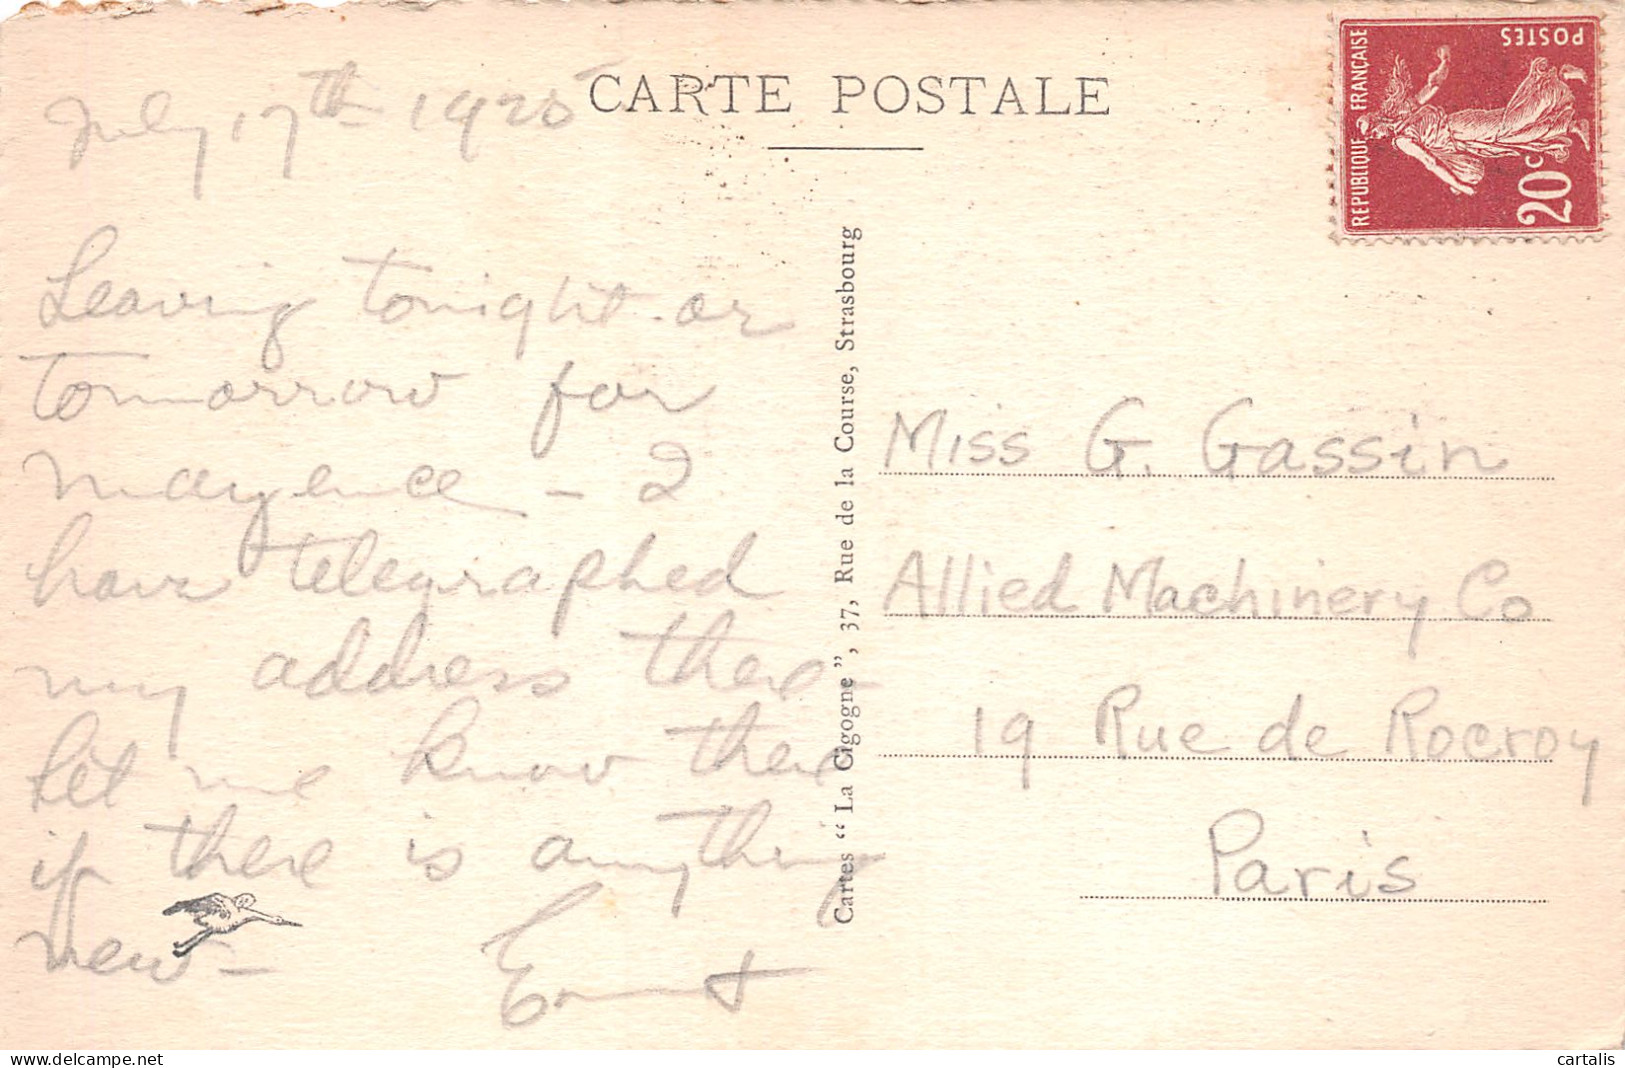 CARTE POSTALE
July 17th 1925
Leaving tonight or
tomorrow for
Mayence - I
have telegraphed
my address there -
let me know there
if there is anything
new -
Ernest
Cartes “ La Cigogne ”, 37, Rue de la Course, Strasbourg
REPUBLIQUE FRANÇAISE
POSTES
20c
Miss G. Gassin
Allied Machinery Co
19 Rue de Rocroy
Paris
www.delcampe.net
cartalis